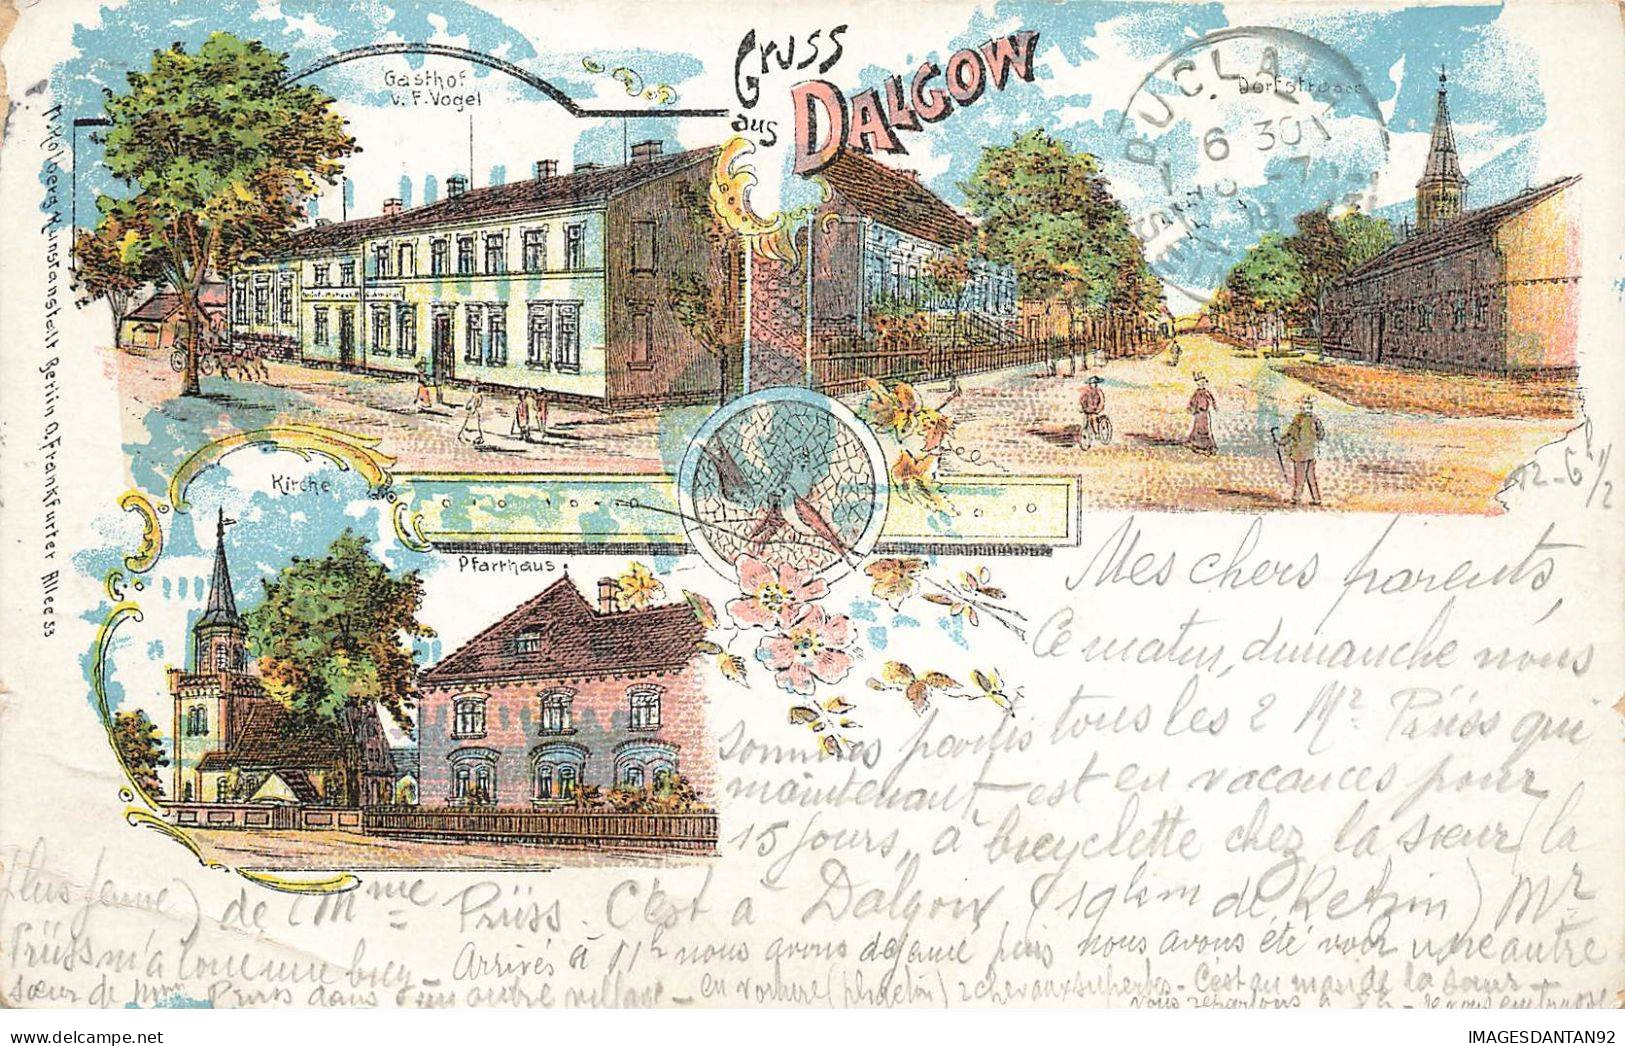 Gruss
aus
DALGOW
Gasthof
v. F. Vogel
Dorfstrasse
DUCLAIR
6 30
Kirche
Pfarrhaus
M. Holberg Kunstanstalt Berlin O, Frankfurter Allee 53
12 - 6h 1/2
Mes chers parents,
Ce matin, dimanche nous
sommes partis tous les 2 Mr Prüss qui
maintenant est en vacances pour
15 jours, à bicyclette chez la sœur (la
plus jeune) de Mme Prüss. C'est à Dalgow (19 km de Ketzin) Mr
Prüss m'a loué une bicy - Arrivés à 11h nous avons déjeuné puis nous avons été voir une autre
sœur de Mme Prüss dans un autre village - en voiture (phaeton) 2 chevaux superbes - C'est au mari de la sœur -
nous repartons à 8h - Je vous embrasse
IMAGESDANTAN92